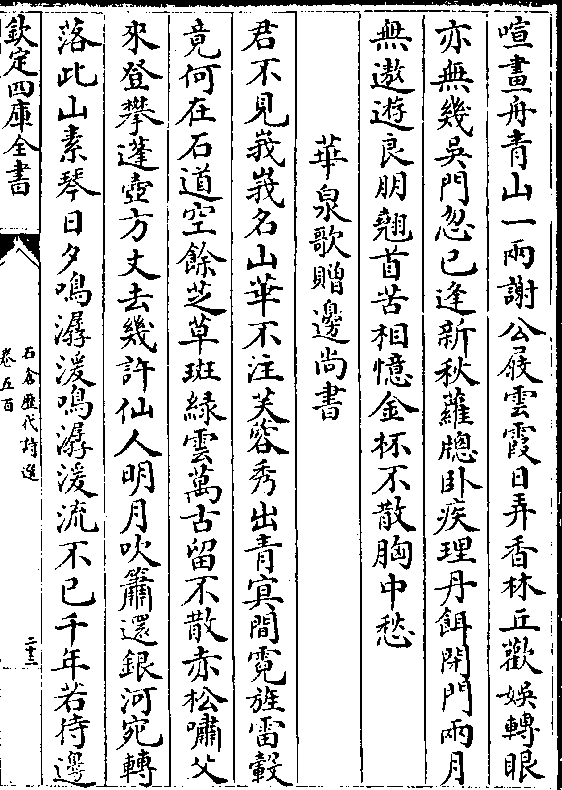 喧畫舟青山一兩謝公屐雲霞日弄香林丘歡娛轉眼
亦無幾吳門忽已逢新秋蘿牕卧疾理丹餌閉門兩月
無遨遊良朋翹首苦相憶金杯不散胸中愁
華泉歌贈邊尚書
君不見峩峩名山華不注芙蓉秀出青㝠間霓旌雷轂
竟何在石道空餘芝草斑緑雲萬古留不散赤松嘯父
來登攀蓬壺方丈去幾許仙人明月吹簫還銀河宛轉
落此山素琴日夕鳴潺湲鳴潺湲流不已千年若待邊
欽定四庫全書
石倉歷代詩選
卷五百
二十三